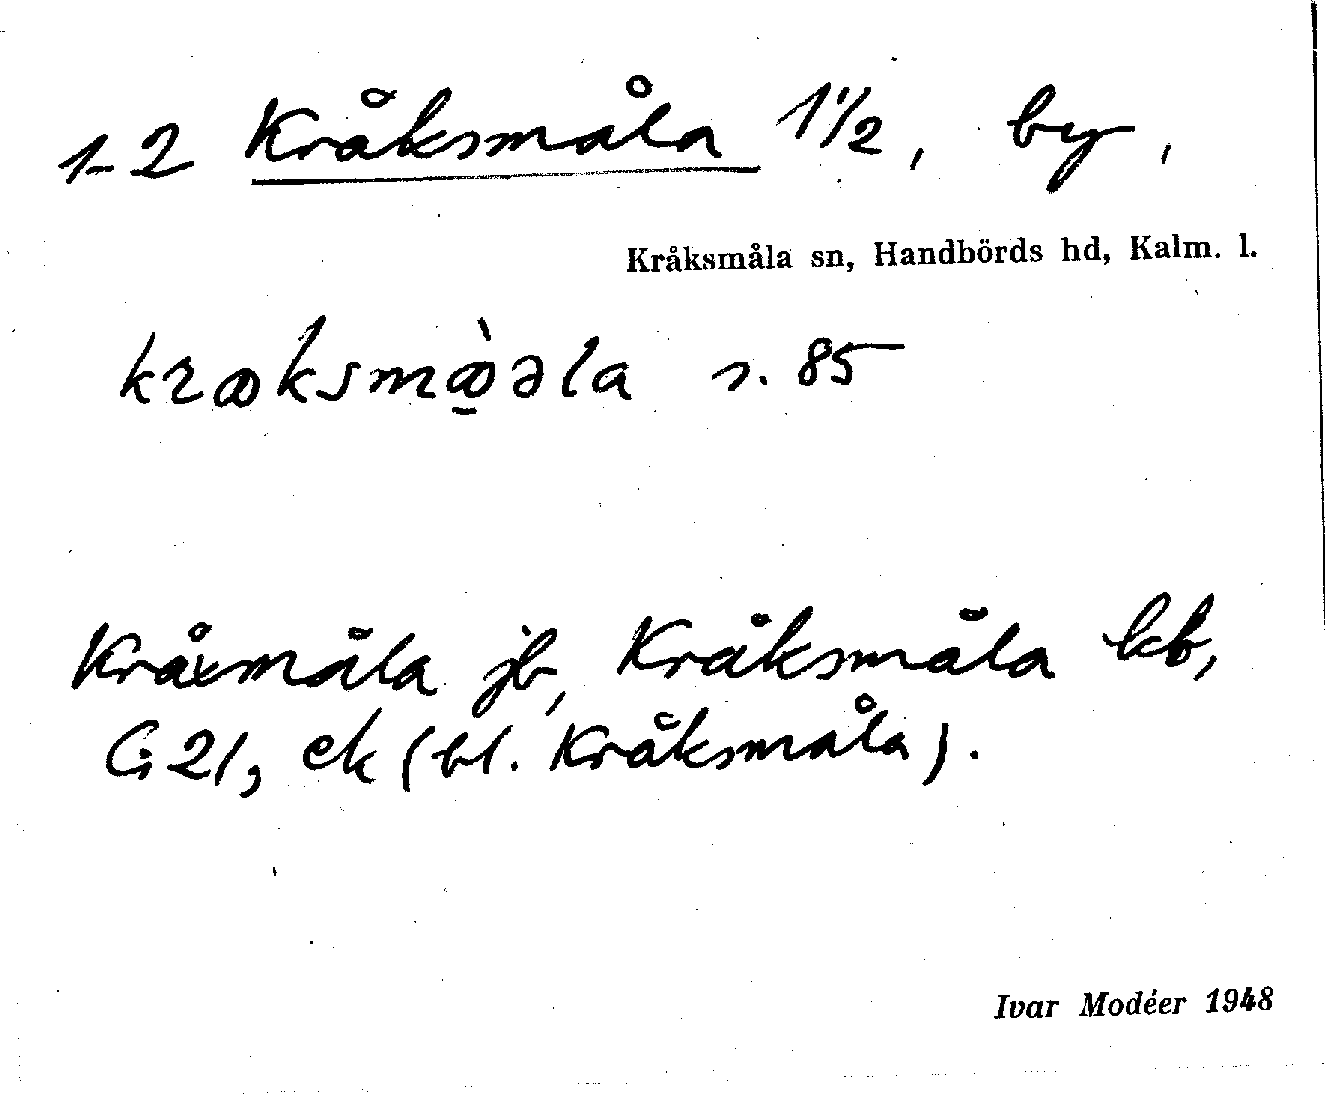 1-2 Kråksmåla 1 1/2, by,
Kråksmåla sn, Handbörds hd, Kalm. l.
s. 85
Kråxmåla jb, Kråksmåla kb,
G 21, ek (bl. Kråksmåla).
Ivar Modéer 1948